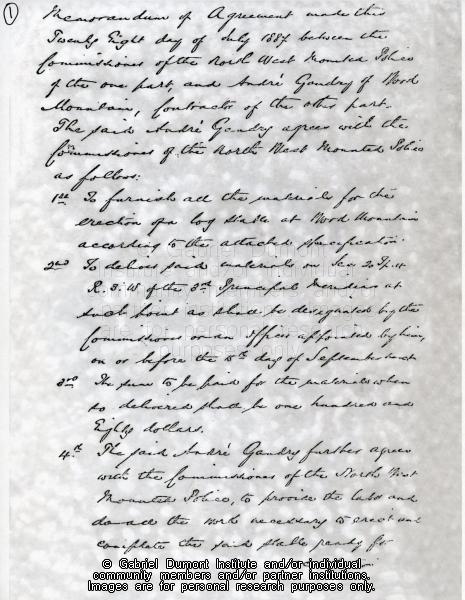 1
Memorandum of Agreement made this
Twenty Eight day of July 1887 between the
Commissioner of the North West Mounted Police
of the one part, and André Gaudry of Wood
Mountain, Contractor of the other part.
The said André Gaudry agrees with the
Commissioner of the North West Mounted Police
as follows:
1st To furnish all the materials for the
erection of a log stable at Wood Mountain
according to the attached specification.
2nd To deliver said materials on Sec 20 Tp. 4
R. 3. W of the 3rd Principal Meridian at
such point as shall be designated by the
Commissioner or an officer appointed by him,
on or before the day of September next
3rd The sum to be paid for the materials when
so delivered shall be one hundred and
Eighty dollars.
4th The said André Gaudry further agrees
with the Commissioner of the North West
Mounted Police, to provide the labor and
do all the work necessary to erect and
complete the said stable ready for
© Gabriel Dumont Institute and/or individual
community members and/or partner institutions.
Images are for personal research purposes only.